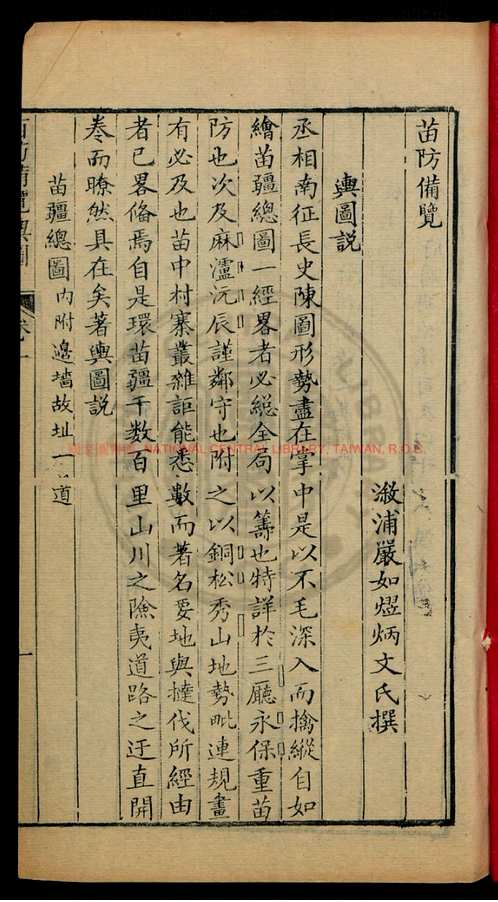 苗防備覽
溆浦嚴如熤炳文氏撰
輿圖說
丞相南征長史陳圖形勢盡在掌中是以不毛深入而擒縱自如
繪苗疆總圖一經畧者必總全局以籌也特詳於三廳永保重苗
防也次及麻瀘沅辰謹鄰守也附之以銅松秀山地勢毗連規畫
有必及也苗中村寨叢雜詎能悉數而著名要地與撻伐所經由
者已畧俻焉自是環苗疆千数百里山川之險夷道路之迂直開
卷而瞭然具在矣著輿圖説
苗疆總圖 内附邊墻故址一道
苗防備覽輿圖 卷一 一
國家圖書館 NATIONAL CENTRAL LIBRARY, TAIWAN, R.O.C.